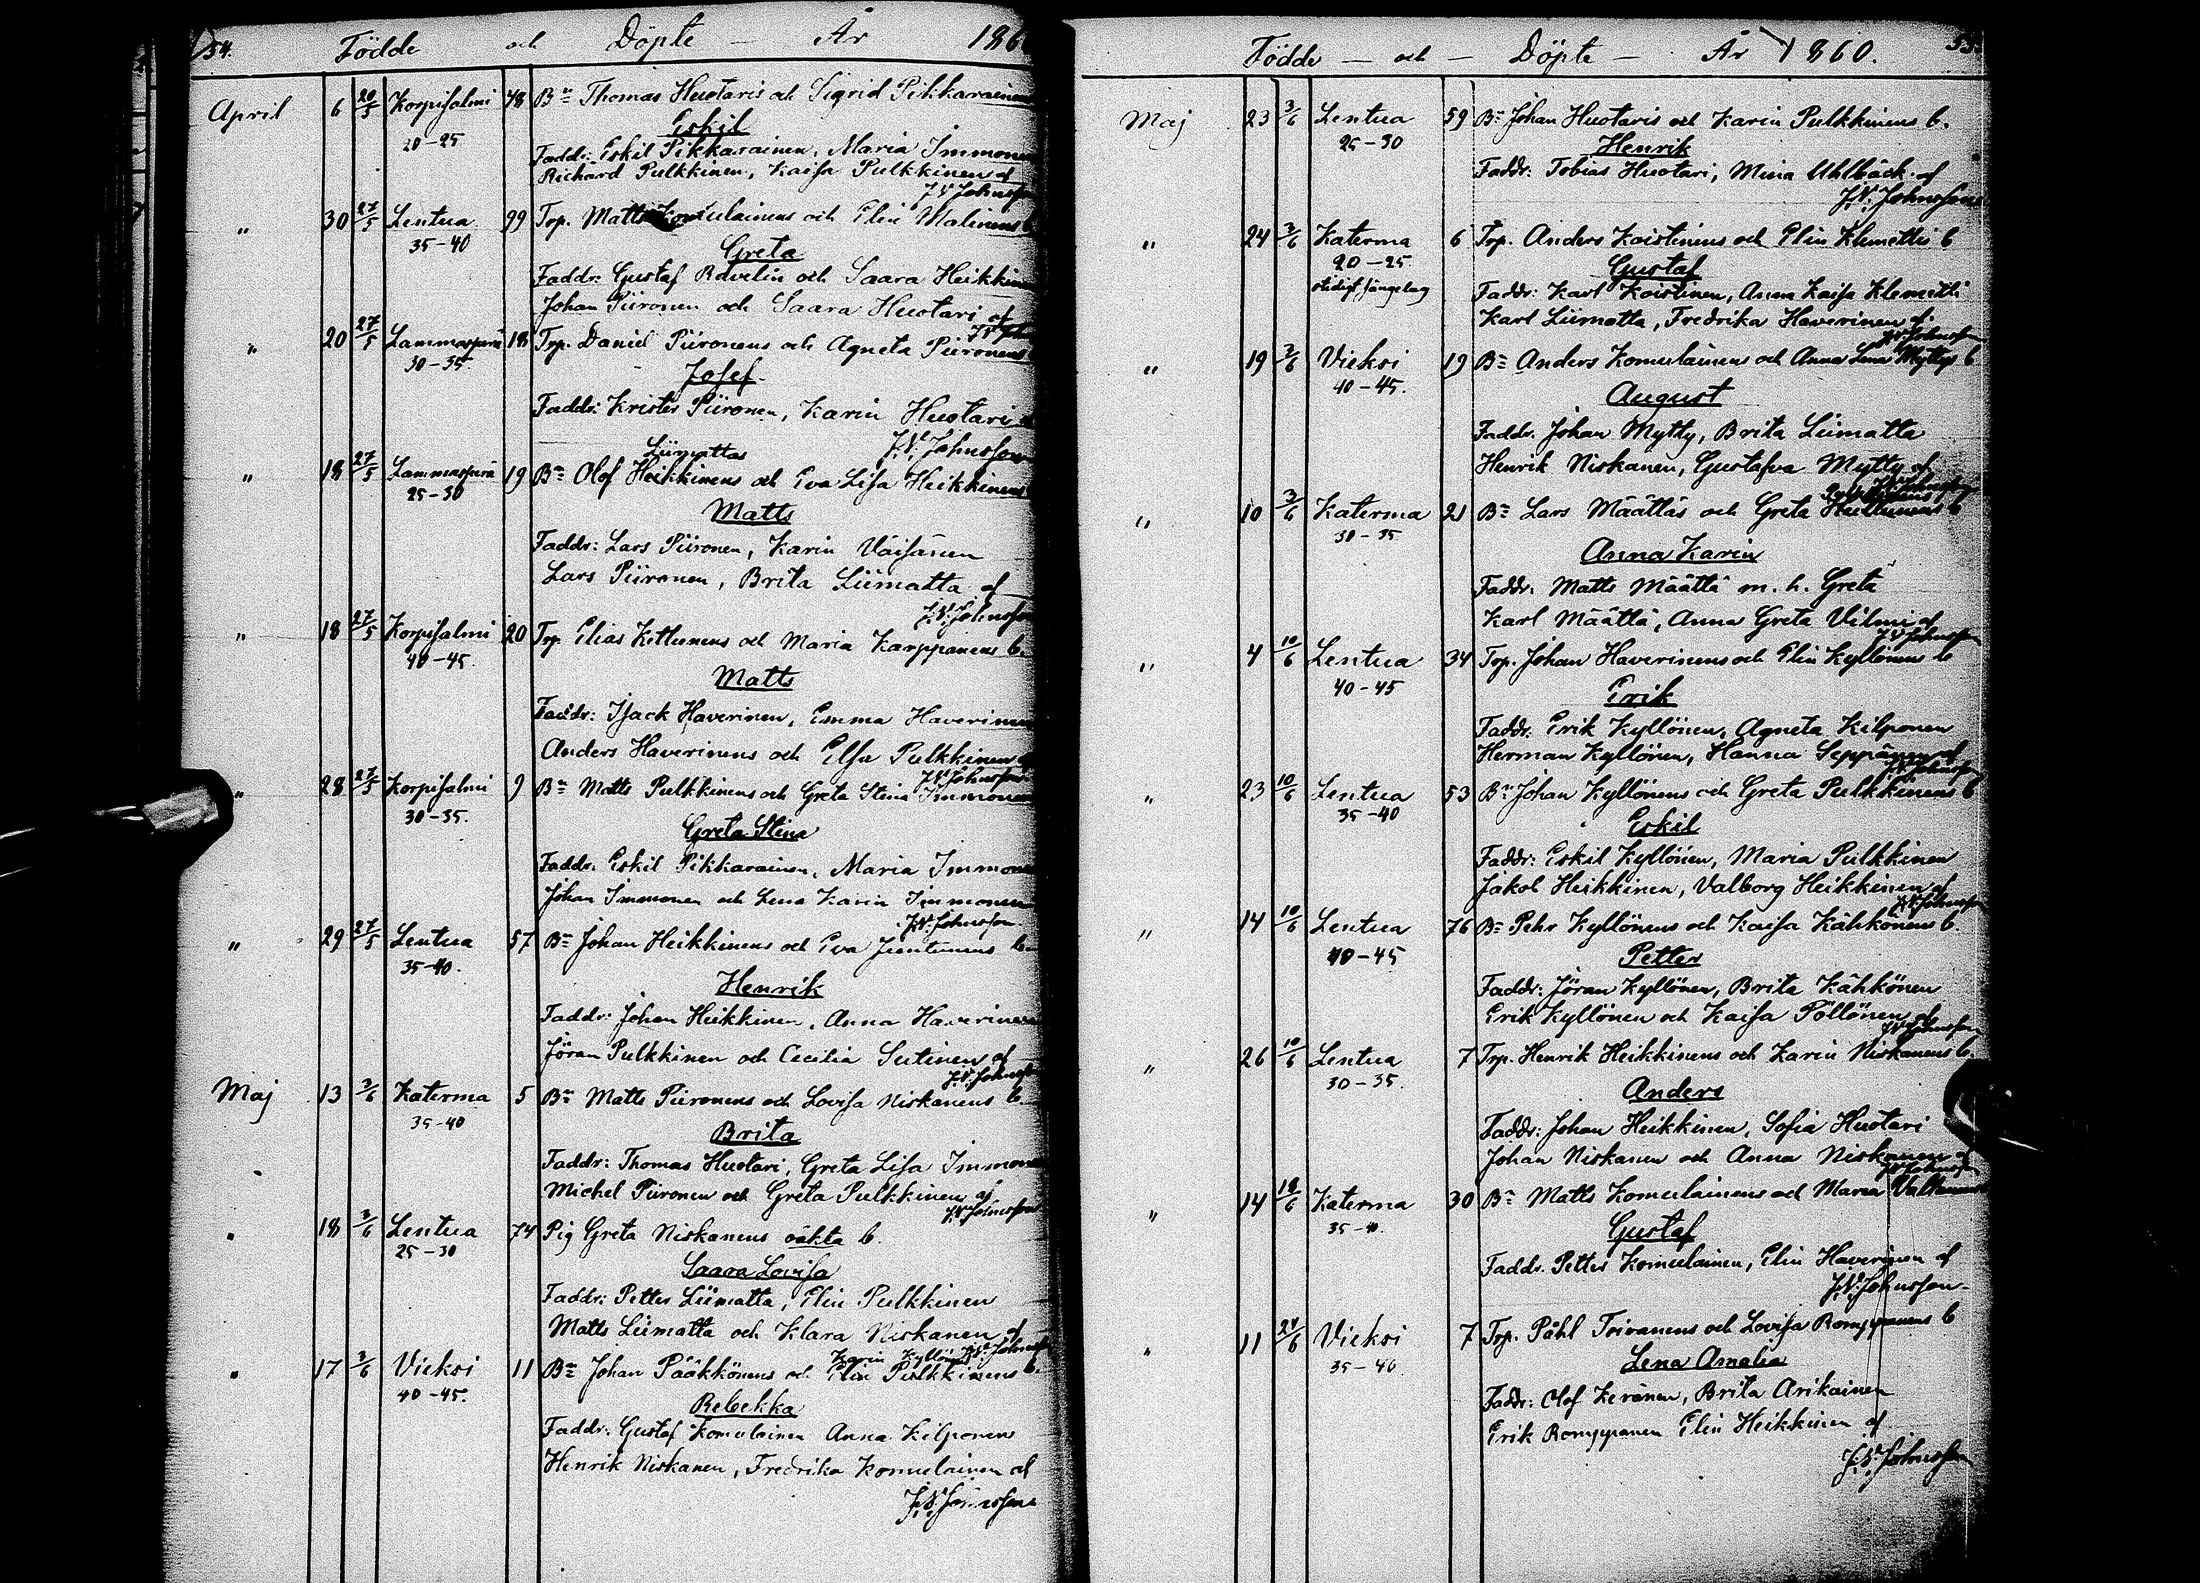 54. Födde och Döpte — År 186
April 6 20/5 Korpisalmi 48 Bn Thomas Huotaris och Sigrid Pikkarainens
20-25 Eskil
Faddr: Eskil Pikkarainen, Maria Immonen
Richard Pulkkinen, Kaisa Pulkkinen af
J.V. Johnsson
" 30 27/5 Lentua 99 Trp. Matts Komulainens och Elin Malinens b
35-40 Greta
Faddr. Gustaf Ravelin och Saara Heikkinen
Johan Piironen och Saara Huotari af
J.V. Johnsson
" 20 27/5 Lammasperä 18 Trp. Daniel Piironens och Agneta Piironens
30-35. Josef.
Faddr: Krister Piironen, Karin Huotari af
J.V. Johnsson
Liimattas
" 18 27/5 Lammasperä 19 Bn Olof Heikkinens och Eva Lisa Heikkinens
25-30 Matts
Faddr: Lars Piironen, Karin Väisänen
Lars Piironen, Brita Liimatta af
J.V. Johnsson
" 18 27/5 Korpisalmi 20 Trp Elias Kettunens och Maria Karppanens b.
40-45. Matts
Faddr: Isack Haverinen, Emma Haverinen
Anders Haverinens och Elsa Pulkkinen af
J.V. Johnsson
" 28 27/5 Korpisalmi 9 Bn Matts Pulkkinens och Greta Stina Immonens
30-35. Greta Stina
Faddr. Eskil Pikkarainen, Maria Immonen
Johan Immonen och Lena Karin Immonen
J.V. Johnsson
" 29 27/5 Lentua 57 Bn Johan Heikkinens och Eva Juntunens b
35-40. Henrik
Faddr: Johan Heikkinen, Anna Haverinen
Jöran Pulkkinen och Cecilia Sutinen af
J.V. Johnsson
Maj 13 3/6 Katerma 5 Bn Matts Piironens och Lovisa Niskanens b
35-40 Brita
Faddr: Thomas Huotari, Greta Lisa Immonen
Michel Piironen och Greta Pulkkinen af
J.V. Johnsson
" 18 3/6 Lentua 74 Pig Greta Niskanens oäkta b.
25-30 Saara Lovisa
Faddr: Petter Liimatta, Elin Pulkkinen
Matts Liimatta och Klara Niskanen af
J.V. Johnsson
Karin Kyllönens
" 17 3/6 Vieksi 11 Bn Johan Pääkkönens och Elin Pulkkinens b.
40-45. Rebekka
Faddr: Gustaf Komulainen Anna Kilponen
Henrik Niskanen, Fredrika Komulainen af
J.V. Johnsson
Födde — och — Döpte — År 1860. 55
Maj 23 3/6 Lentua 59 Bn Johan Huotaris och Karin Pulkkinens b.
25-30 Henrik
Faddr: Tobias Huotari, Mina Uhlbäck af
J.V. Johnsson
" 24 3/6 Katerma 6 Trp. Anders Koistinens och Elin Klemettis b
20-25. Gustaf
Faddr: Karl Koistinen, Anna Kaisa Klemetti
Karl Liimatta, Fredrika Haverinen af
J.V. Johnsson
" 19 3/6 Vieksi 19 Bn Anders Komulainens och Anna Lena Myttys b
40-45. August
Faddr. Johan Mytty, Brita Liimatta
Henrik Niskanen, Gustafva Mytty af
J.V. Johnsson
" 10 3/6 Katerma 21 Bn Lars Määttäs och Greta Huttunens b
30-35 Anna Karin
Faddr. Matts Määttä m. h. Greta
Karl Määttä, Anna Greta Vilmi af
J.V. Johnsson
" 4 10/6 Lentua 34 Trp. Johan Haverinens och Elin Kyllönens b
40-45 Erik
Faddr. Erik Kyllönen, Agneta Kilponen
Herman Kyllönen, Hanna Seppänen af
J.V. Johnsson
" 23 10/6 Lentua 53 Bn Johan Kyllönens och Greta Pulkkinens b
35-40 Eskil
Faddr: Eskil Kyllönen, Maria Pulkkinen
Jakob Heikkinen, Valborg Heikkinen af
J.V. Johnsson
" 14 10/6 Lentua 76 Bn Pehr Kyllönens och Kaisa Kähkönens b.
40-45 Petter
Faddr: Jöran Kyllönen, Brita Kähkönen
Erik Kyllönen och Kaisa Pöllönen af
J.V. Johnsson
" 26 10/6 Lentua 7 Trp. Henrik Heikkinens och Karin Niskanens b.
30-35. Anders
Faddr: Johan Heikkinen, Sofia Huotari
Johan Niskanen och Anna Niskanen af
J.V. Johnsson
" 14 18/6 Katerma 30 Bn Matts Komulainens och Maria Valtanens
35-40. Gustaf
Faddr. Petter Komulainen, Elin Haverinen af
J.V. Johnsson
" 11 24/6 Vieksi 7 Trp. Påhl Toivanens och Lovisa Romppanens b
35-40 Lena Amalia
Faddr: Olof Keränen, Brita Arikainen
Erik Romppanen Elin Heikkinen af
J.V. Johnsson